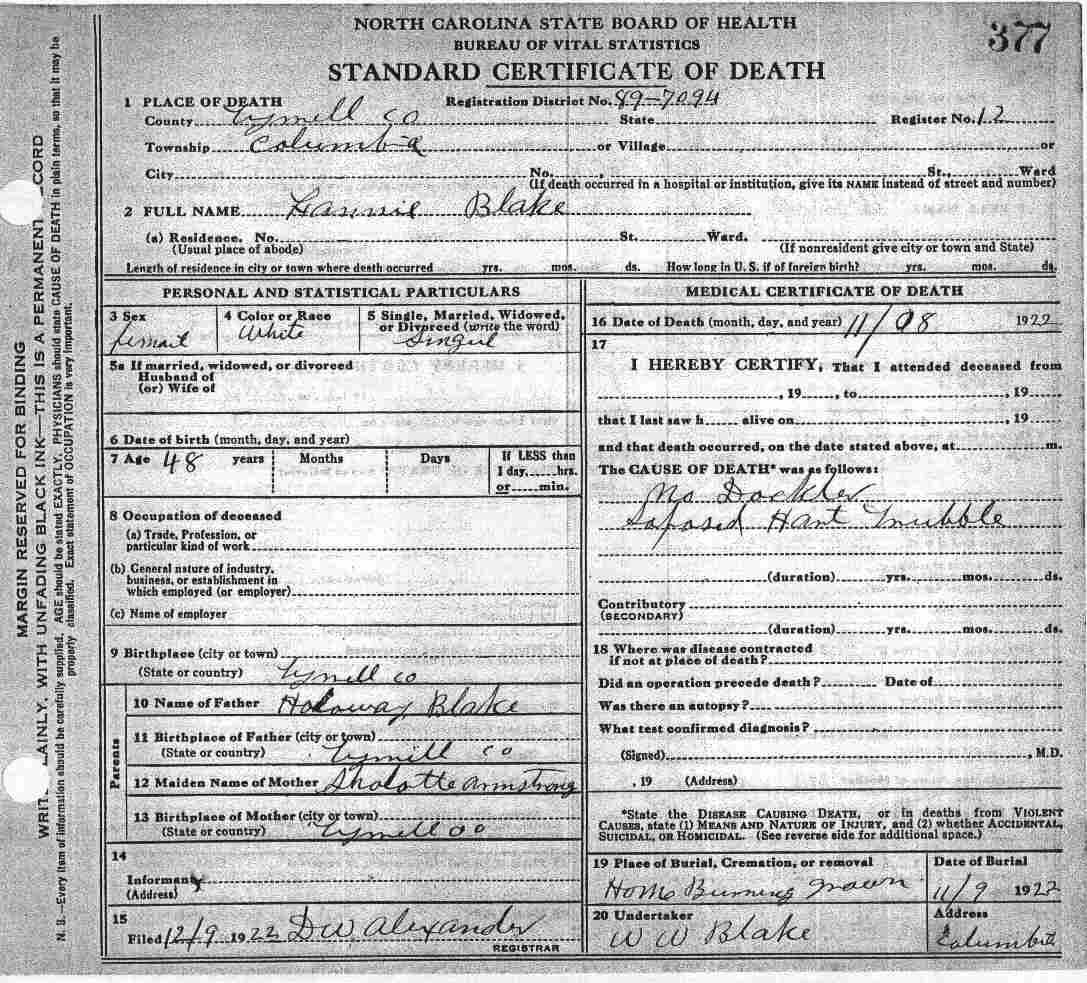 NORTH CAROLINA STATE BOARD OF HEALTH
377
BUREAU OF VITAL STATISTICS
STANDARD CERTIFICATE OF DEATH
1 PLACE OF DEATH Registration District No. 89-7094
County Tyrrell co State Register No. 12
Township Columbia or Village or
City No. , St., Ward
(If death occurred in a hospital or institution, give its NAME instead of street and number)
2 FULL NAME Blake
(a) Residence. No. St. Ward.
(Usual place of abode) (If nonresident give city or town and State)
Length of residence in city or town where death occurred yrs. mos. ds. How long in U. S. if of foreign birth? yrs. mos. ds.
PERSONAL AND STATISTICAL PARTICULARS
3 Sex 4 Color or Race 5 Single, Married, Widowed,
or Divorced (write the word)
White
5a If married, widowed, or divorced
Husband of
(or) Wife of
6 Date of birth (month, day, and year)
7 Age 48 years Months Days If LESS than
1 day, hrs.
or min.
8 Occupation of deceased
(a) Trade, Profession, or
particular kind of work
(b) General nature of industry,
business, or establishment in
which employed (or employer)
(c) Name of employer
9 Birthplace (city or town)
(State or country) Tyrrell co
Parents
10 Name of Father Holoway Blake
11 Birthplace of Father (city or town)
(State or country) Tyrrell co
12 Maiden Name of Mother Sholotte Armstrong
13 Birthplace of Mother (city or town)
(State or country) Tyrrell co
14
Informant
(Address)
15
Filed 12/9 1922 D W Alexander
REGISTRAR
MEDICAL CERTIFICATE OF DEATH
16 Date of Death (month, day, and year) 11/08 1922
17
I HEREBY CERTIFY, That I attended deceased from
, 19 , to , 19
that I last saw h alive on , 19
and that death occurred, on the date stated above, at m.
The CAUSE OF DEATH* was as follows:
No Dockter
Soposed Hart Trubble
(duration) yrs. mos. ds.
Contributory
(SECONDARY)
(duration) yrs. mos. ds.
18 Where was disease contracted
if not at place of death?
Did an operation precede death? Date of
Was there an autopsy?
What test confirmed diagnosis?
(Signed) , M.D.
, 19 (Address)
*State the DISEASE CAUSING DEATH, or in deaths from VIOLENT
CAUSES, state (1) MEANS AND NATURE OF INJURY, and (2) whether ACCIDENTAL,
SUICIDAL, OR HOMICIDAL. (See reverse side for additional space.)
19 Place of Burial, Cremation, or removal Date of Burial
Home 11/9 1922
20 Undertaker Address
W W Blake Columbia
MARGIN RESERVED FOR BINDING
WRITE LAINLY, WITH UNFADING BLACK INK—THIS IS A PERMANENT CORD
N. B.—Every item of information should be carefully supplied. AGE should be stated EXACTLY. PHYSICIANS should state CAUSE OF DEATH in plain terms, so that it may be
properly classified. Exact statement of OCCUPATION is very important.